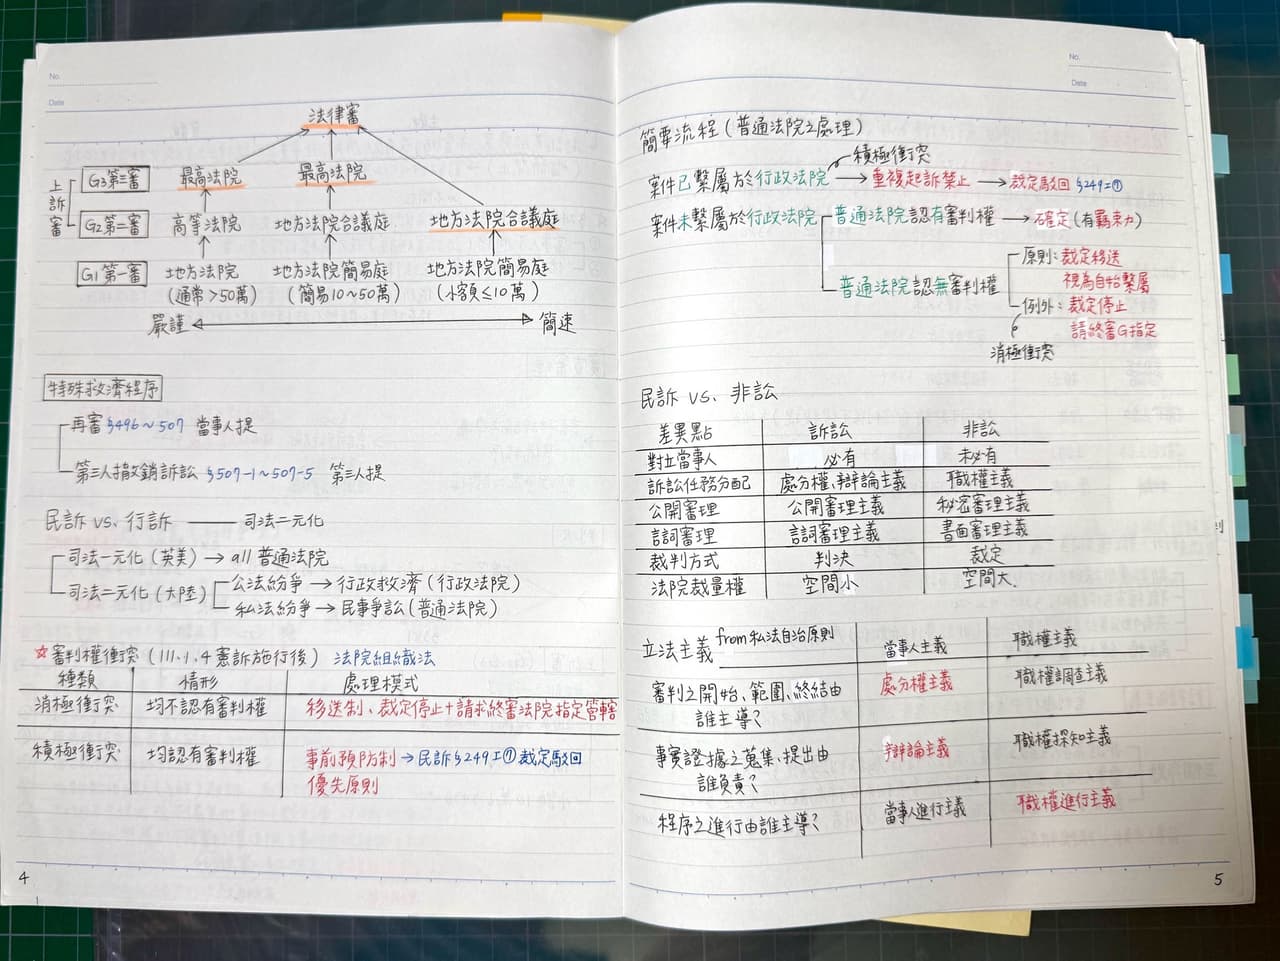 No.
Date
法律審
上訴審
G3第三審 最高法院 最高法院
G2第二審 高等法院 地方法院合議庭 地方法院合議庭
G1第一審 地方法院 地方法院簡易庭 地方法院簡易庭
(通常>50萬) (簡易10~50萬) (小額≤10萬)
嚴謹 簡速
特殊救濟程序
再審 §496~507 當事人提
第三人撤銷訴訟 §507-1~507-5 第三人提
民訴 vs. 行訴 司法二元化
司法一元化(英美)→all 普通法院
司法二元化(大陸) 公法紛爭→行政救濟(行政法院)
私法紛爭→民事爭訟(普通法院)
☆審判權衝突(111.1.4憲訴施行後) 法院組織法
種類 情形 處理模式
消極衝突 均不認有審判權 移送制、裁定停止+請求終審法院指定管轄
積極衝突 均認有審判權 事前預防制→民訴§249I⑦裁定駁回
優先原則
4
No.
Date
簡要流程(普通法院之處理)
積極衝突
案件已繫屬於行政法院→重複起訴禁止→裁定駁回§249I⑦
案件未繫屬於行政法院 普通法院認有審判權→確定(有羈束力)
普通法院認無審判權 原則:裁定移送
視為自始繫屬
例外:裁定停止
請終審G指定
消極衝突
民訴 vs. 非訟
差異點 訴訟 非訟
對立當事人 必有 未必有
訴訟任務分配 處分權、辯論主義 職權主義
公開審理 公開審理主義 秘密審理主義
言詞審理 言詞審理主義 書面審理主義
裁判方式 判決 裁定
法院裁量權 空間小 空間大
立法主義 from私法自治原則 當事人主義 職權主義
審判之開始、範圍、終結由誰主導? 處分權主義 職權調查主義
事實證據之蒐集、提出由誰負責? 辯論主義 職權探知主義
程序之進行由誰主導? 當事人進行主義 職權進行主義
5